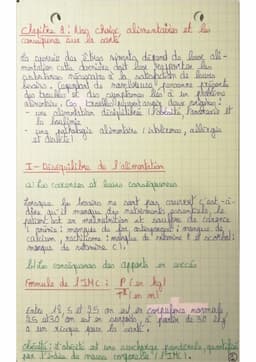 Chapitre 8 : Nos choix alimentaires et les
conséquences sur la santé
La survie des êtres vivants dépend de leur ali-
mentation cette dernière doit leur apporter les
nutriments nécessaires à la satisfaction de leurs
besoins. Cependant de nombreuses personnes présente
des troubles et des symptômes liés à un problème
alimentaire. Ces troubles peuvent avoir deux origines :
- une alimentation déséquilibrée (obésité, anorexie et
la boulimie
- une pathologie alimentaire (intolérance, allergie
et diabète)
I - Déséquilibre de l'alimentation
a) Les carences et leurs conséquences
Lorsque les besoins ne sont pas couvert c'est-à-
dire qu'il manque des nutriments essentiels, le
patient est en malnutrition et souffre de carence
: manque de
calcium, rachitisme : manque de vitamine D et scorbut :
manque de vitamine C).
b) Les conséquences des apports en excès
Formule de l'IMC : P (en kg)
T² (en m)
Entre 18,5 et 25 on est en corpulence normale
25 et 30 on est en surpoids, à partir de 30
a un risque pour la santé.
Obésité : l'obésité est une surcharge pondérale quantifiée
par l'indice de masse corporelle (IMC).